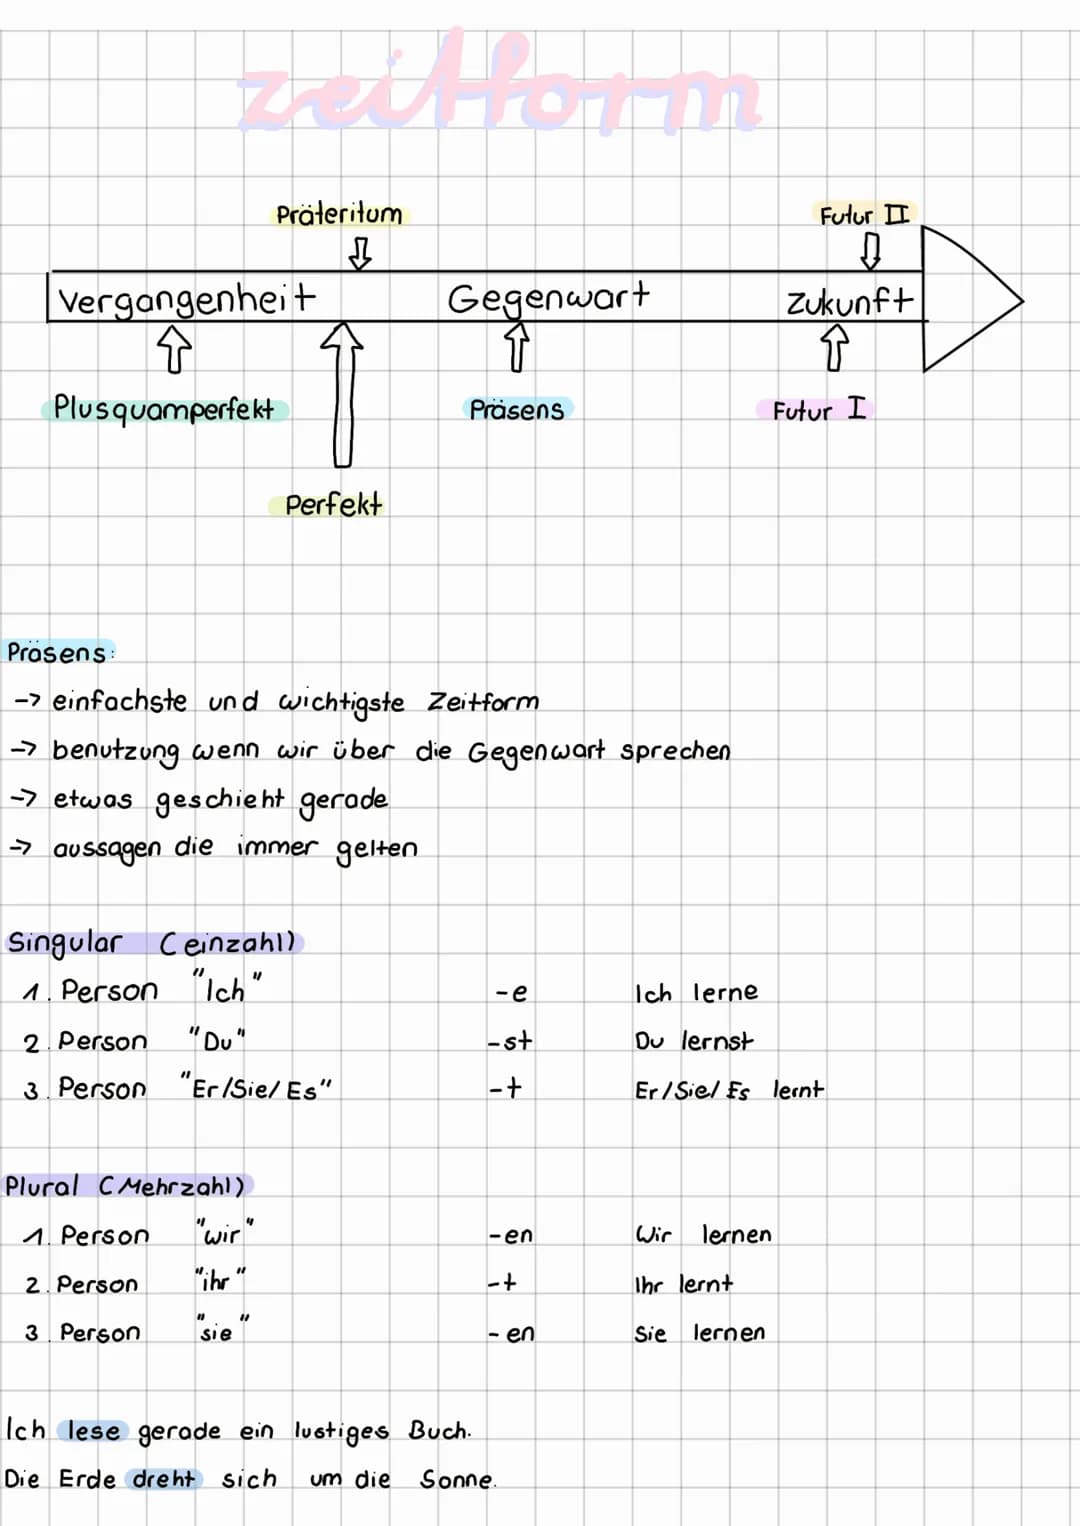 zeitform
Präteritum Futur II
Vergangenheit Gegenwart Zukunft
Plusquamperfekt Präsens Futur I
Perfekt
Präsens:
-> einfachste und wichtigste Zeitform
-> benutzung wenn wir über die Gegenwart sprechen
-> etwas geschieht gerade
-> aussagen die immer gelten
Singular (einzahl)
1. Person "Ich" -e Ich lerne
2. Person "Du" -st Du lernst
3. Person "Er/Sie/Es" -t Er/Sie/Es lernt
Plural (Mehrzahl)
1. Person "wir" -en Wir lernen
2. Person "ihr" -t Ihr lernt
3. Person "sie" -en Sie lernen
Ich lese gerade ein lustiges Buch.
Die Erde dreht sich um die Sonne.